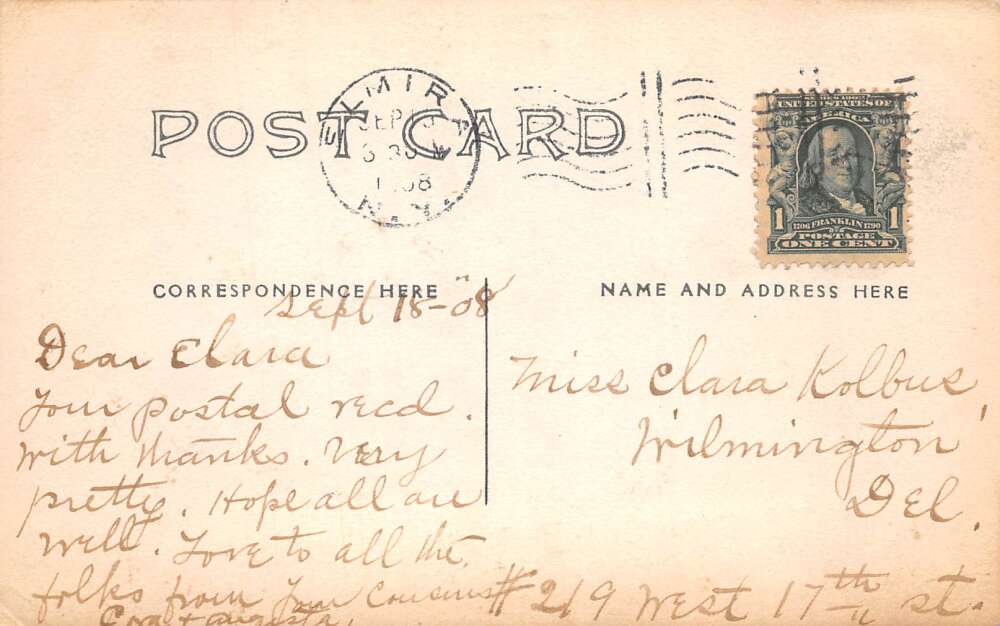 POST CARD
ELMIRA
SEP
N.Y.
UNITED STATES OF
AMERICA
1 1706 FRANKLIN 1790 1
POSTAGE
ONE CENT
CORRESPONDENCE HERE
NAME AND ADDRESS HERE
Sept 18-08
Dear Clara
Your postal recd.
With thanks. Very
pretty. Hope all are
well. Love to all the
folks from Your Cousins
Cora + Augusta.
Miss Clara Kolbus,
Wilmington
Del.
#219 West 17th st.